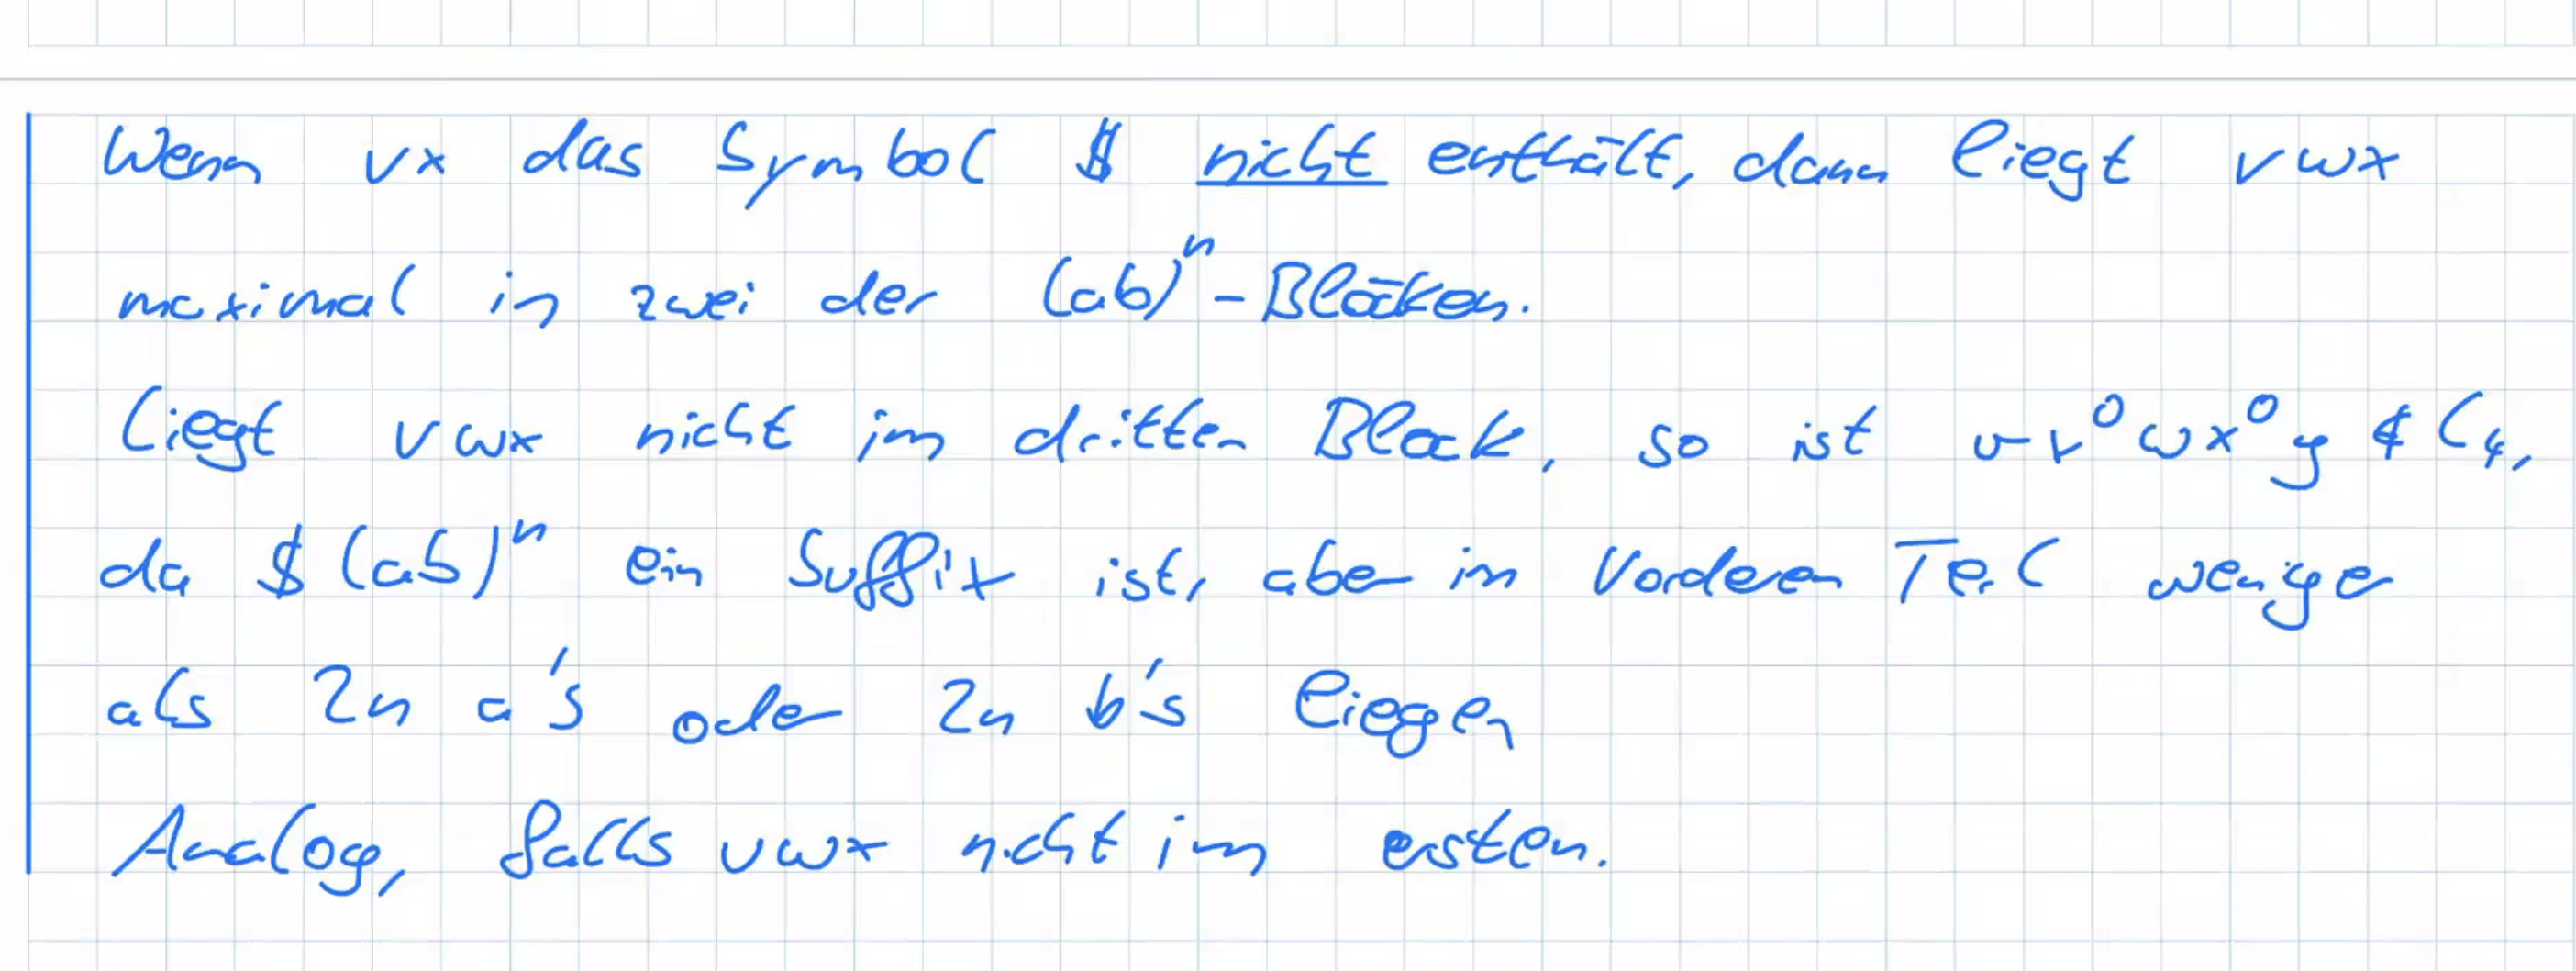 Wenn vx das Symbol $ nicht enthält, dann liegt vwx
maximal in zwei der (ab)^n-Blöcken.
Liegt vwx nicht im dritten Block, so ist uv^0wx^0y ∉ L_4,
da $(ab)^n ein Suffix ist, aber im Vorderen Teil weniger
als 2n a's oder 2n b's liegen
Analog, falls vwx nicht im ersten.